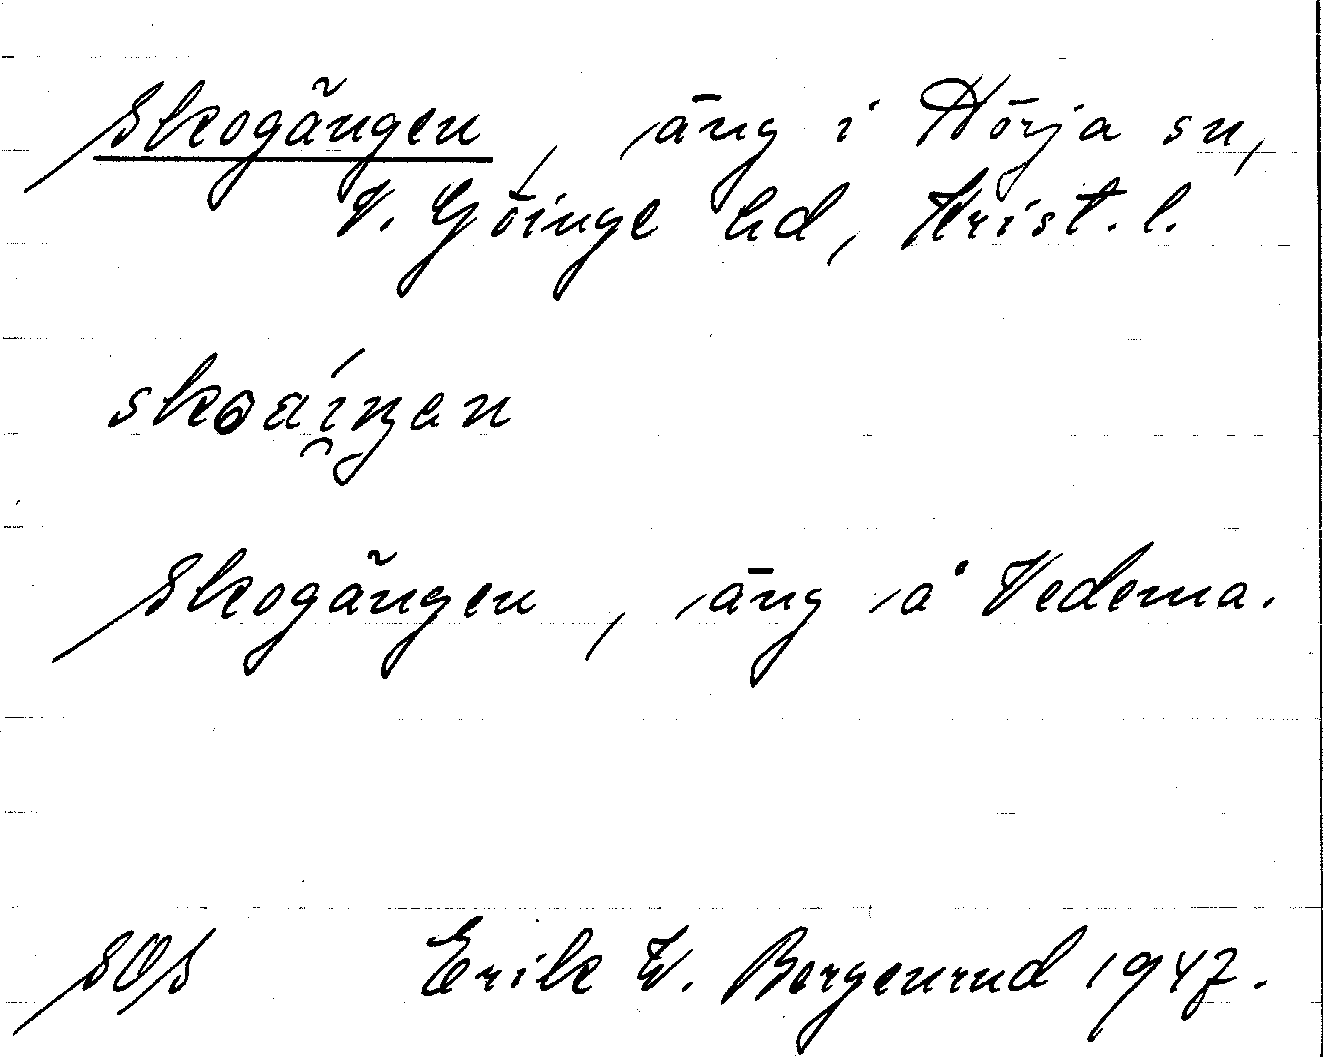 Skogängen, äng i Hörja sn,
V. Göinge hd, Krist. l.
Skogängen, äng å Vedema.
SOS Erik W. Bergenrud 1947.